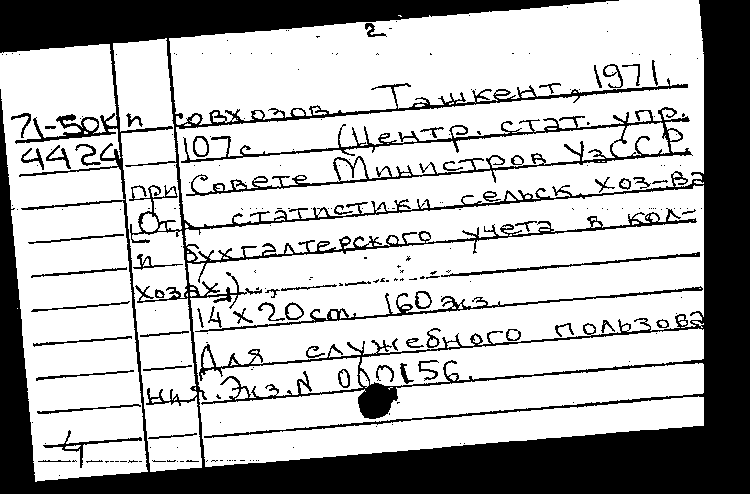 2
71-50К п совхозов. Ташкент, 1971.
4424 107 с. (Центр. стат. упр.
при Совете Министров УзССР.
Отд. статистики сельск. хоз-ва
и бухгалтерского учета в кол-
хозах).
14 x 20 cm. 160 экз.
Для служебного пользова
ния. Экз. N 000156.
4